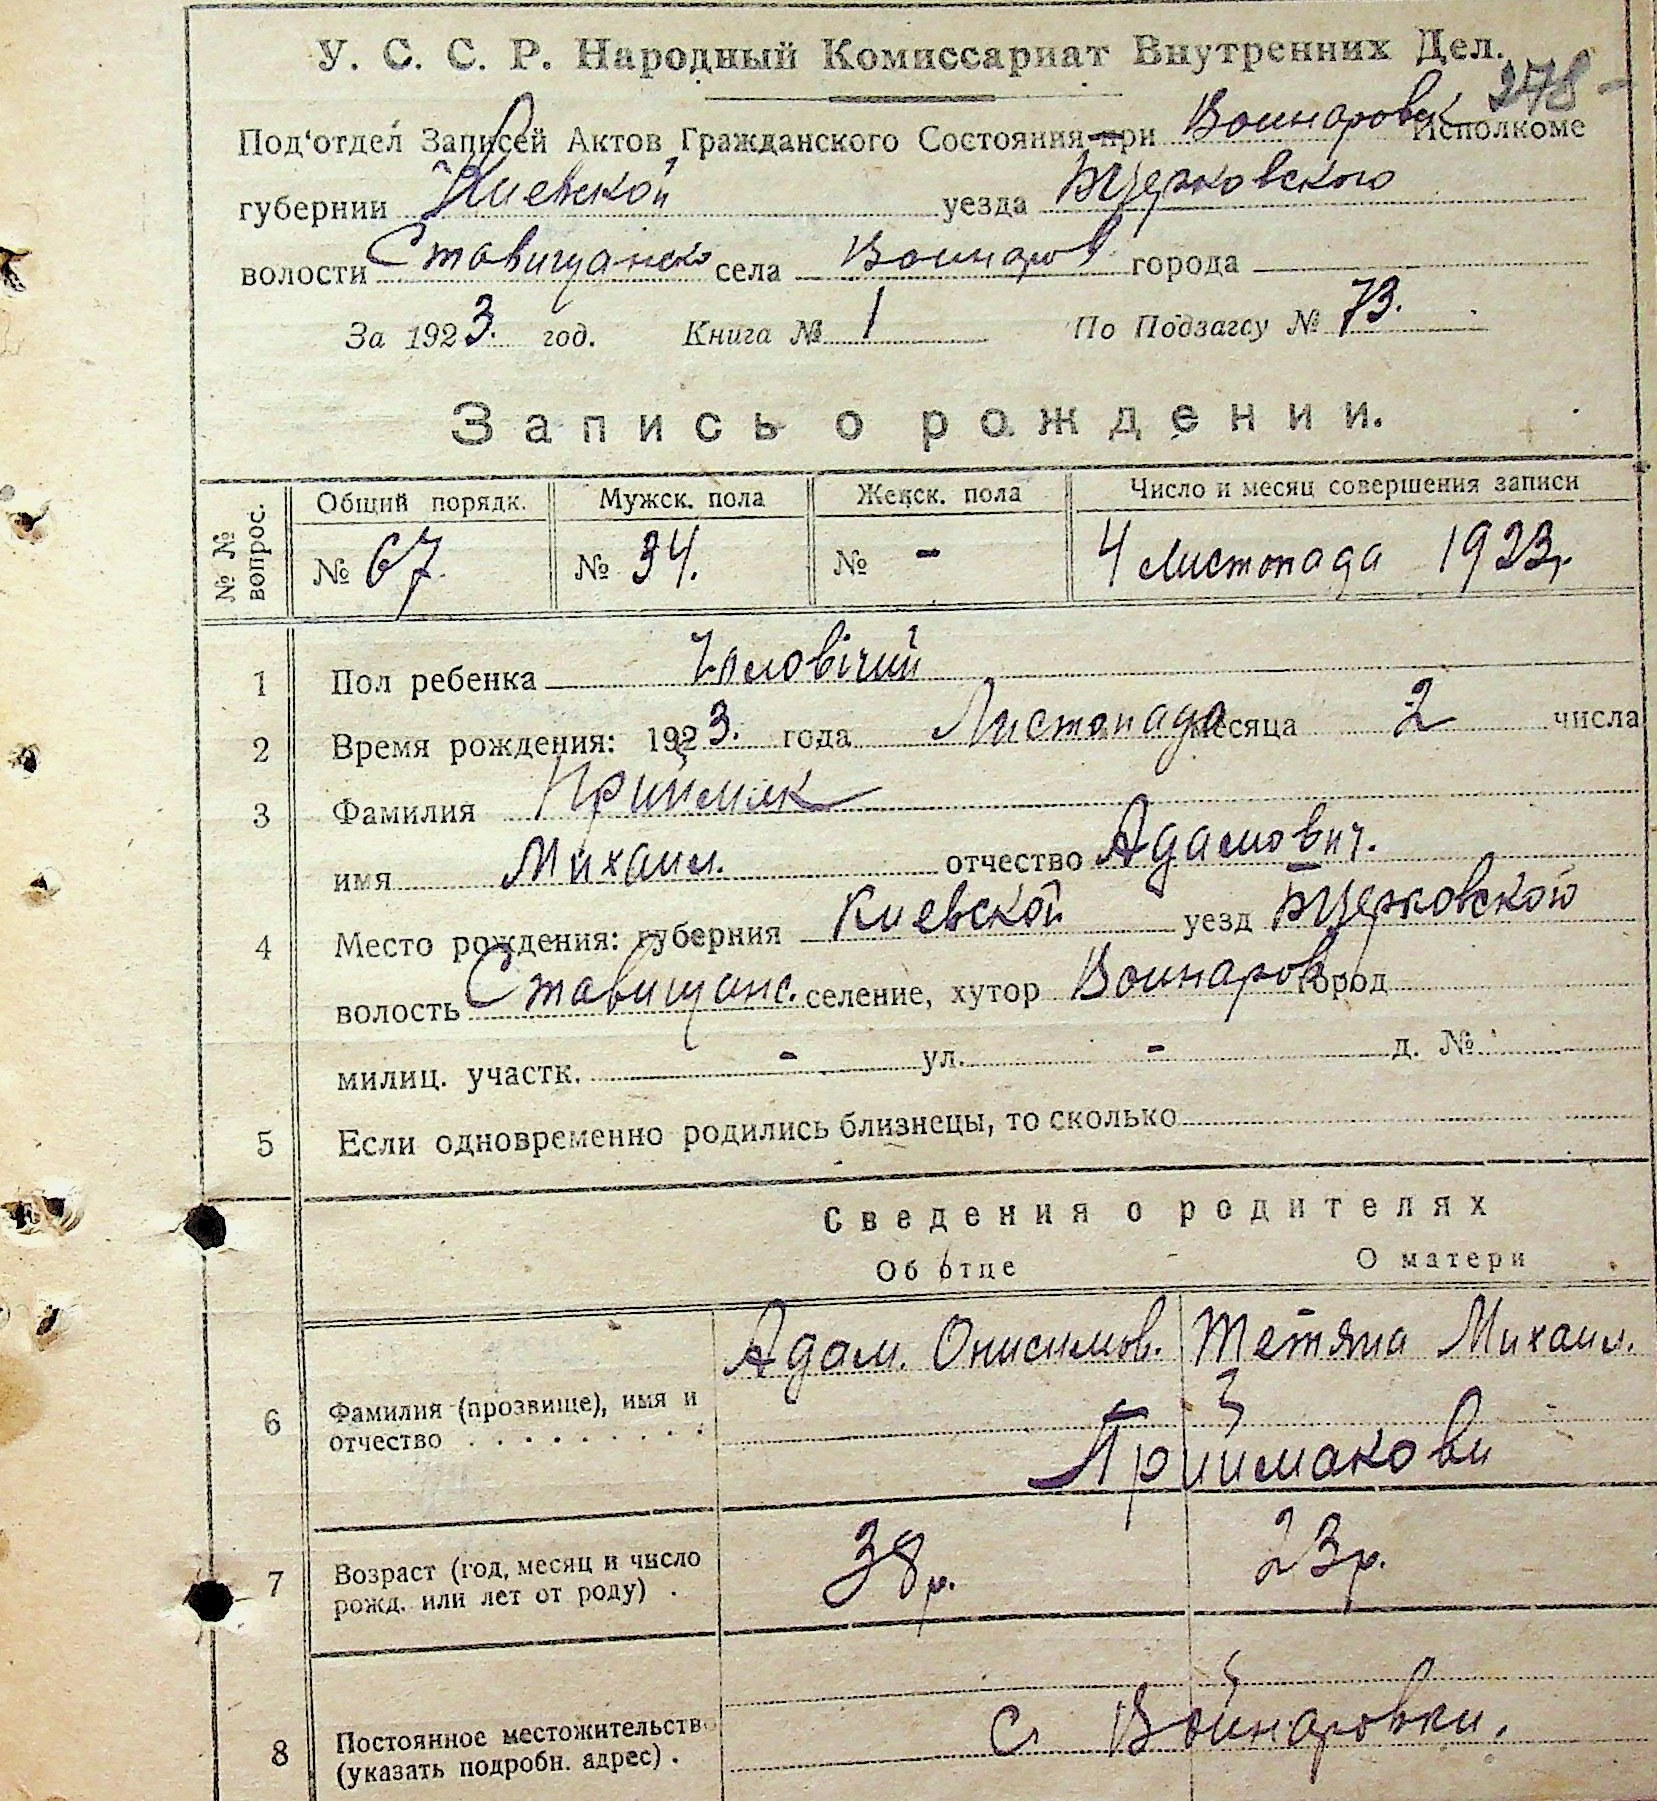 У. С. С. Р. Народный Комиссариат Внутренних Дел.
278
Под'отдел Записей Актов Гражданского Состояния при Воинаровск Исполкоме
губернии Киевской уезда БЦерковского
волости Ставищанско села Воинаров города
За 1923. год. Книга № 1 По Подзагсу № 73.
Запись о рождении.
№ № вопрос. Общий порядк. Мужск. пола Женск. пола Число и месяц совершения записи
№ 67. № 34. № - 4 Листопада 1923р.
1 Пол ребенка Чоловічий
2 Время рождения: 1923. года Листопада месяца 2 числа
3 Фамилия Приймак
имя Михаил. отчество Адамович.
4 Место рождения: губерния Киевской уезд БЦерковской
волость Ставищанс. селение, хутор Воинаров город
милиц. участк. - ул. - д. №
5 Если одновременно родились близнецы, то сколько
Сведения о родителях
Об отце О матери
Адам. Онисимов. Тетяна Михаил.
6 Фамилия (прозвище), имя и
отчество . . . . . . . . .
Приймакови
7 Возраст (год, месяц и число
рожд. или лет от роду) . 38р. 23р.
8 Постоянное местожительство
(указать подробн. адрес) . с Войнаровки.